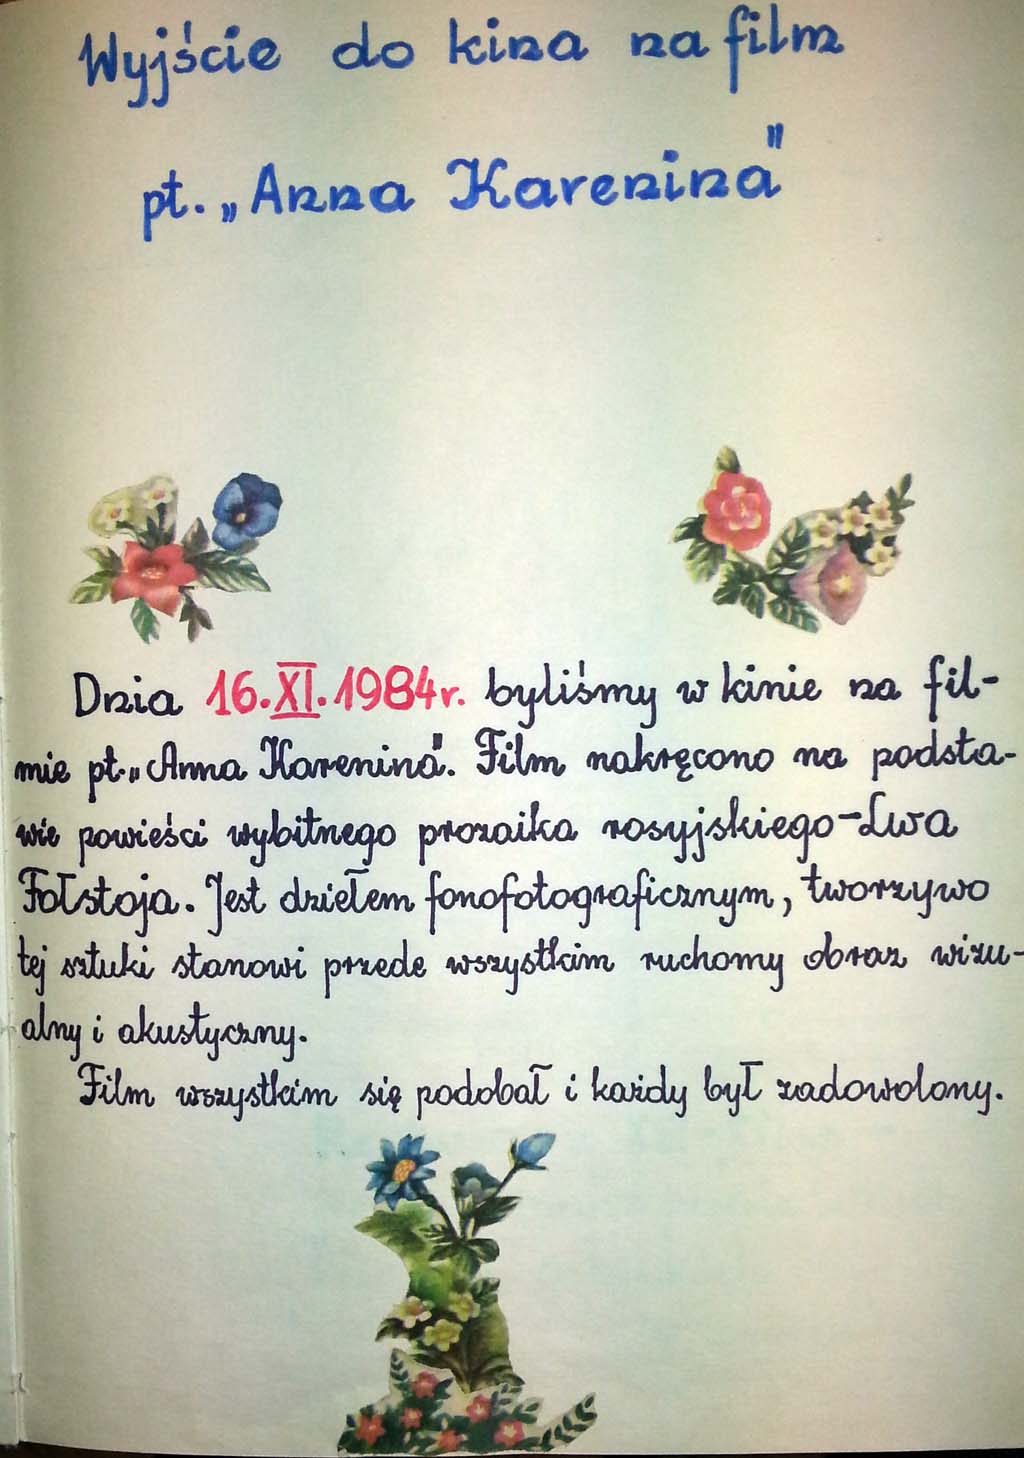 Wyjście do kina na film
pt. „Anna Karenina"
Dnia 16.XI.1984r. byliśmy w kinie na fil-
mie pt. „Anna Karenina". Film nakręcono na podsta-
wie powieści wybitnego prozaika rosyjskiego-Lwa
Tołstoja. Jest dziełem fonofotograficznym, tworzywo
tej sztuki stanowi przede wszystkim ruchomy obraz wizu-
alny i akustyczny.
Film wszystkim się podobał i każdy był zadowolony.